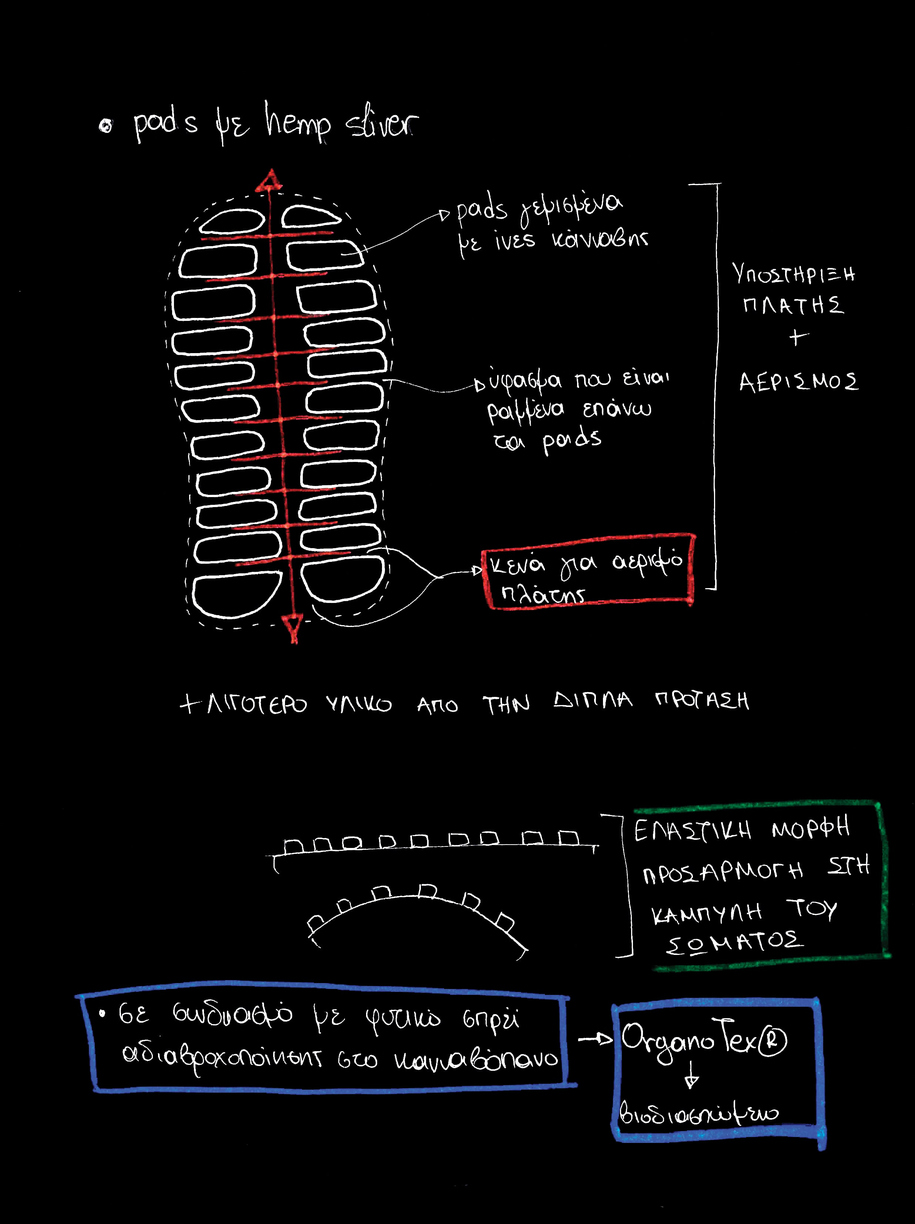 • pads με hemp sliver
pads γεμισμένα
με ίνες κάνναβης
ΥΠΟΣΤΗΡΙΞΗ
ΠΛΑΤΗΣ
+
ΑΕΡΙΣΜΟΣ
ύφασμα που είναι
ραμμένα επάνω
τα pads
κενά για αερισμό
πλάτης
+ ΛΙΓΟΤΕΡΟ ΥΛΙΚΟ ΑΠΟ ΤΗΝ ΔΙΠΛΑ ΠΡΟΤΑΣΗ
ΕΛΑΣΤΙΚΗ ΜΟΡΦΗ
ΠΡΟΣΑΡΜΟΓΗ ΣΤΗ
ΚΑΜΠΥΛΗ ΤΟΥ
ΣΩΜΑΤΟΣ
• σε συνδυασμό με φυτικό σπρέι
αδιαβροχοποίησης στο κανναβόπανο
OrganoTex®
βιοδιασπώμενο